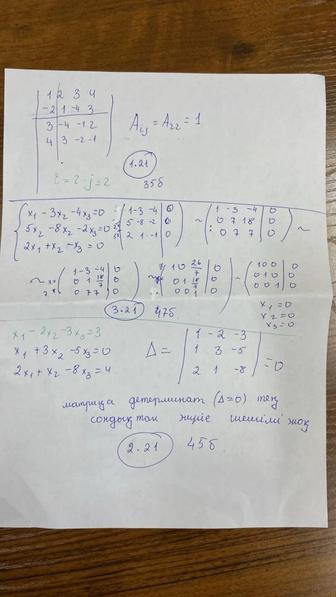 1 2 3 4
-2 1 -4 3
3 -4 -1 2
4 3 -2 -1
A_ij = A_22 = 1
i=2 j=2
1.21
35б
x₁ - 3x₂ - 4x₃ = 0
5x₂ - 8x₂ - 2x₃ = 0
2x₁ + x₂ - x₃ = 0
1 -3 -4 | 0
5 -8 -2 | 0
2 1 -1 | 0
~
1 -3 -4 | 0
0 7 18 | 0
0 7 7 | 0
~
~
1 -3 -4 | 0
0 1 18/7 | 0
0 7 7 | 0
~
1 0 26/7 | 0
0 1 18/7 | 0
0 0 1 | 0
~
1 0 0 | 0
0 1 0 | 0
0 0 1 | 0
3.21
47б
x₁ = 0
x₂ = 0
x₃ = 0
x₁ - 2x₂ - 3x₃ = 3
x₁ + 3x₂ - 5x₃ = 0
2x₁ + x₂ - 8x₃ = 4
Δ =
1 -2 -3
1 3 -5
2 1 -8
= 0
матрица детерминат (Δ=0) тең
сондықтан шешімі жоқ
2.21
45б